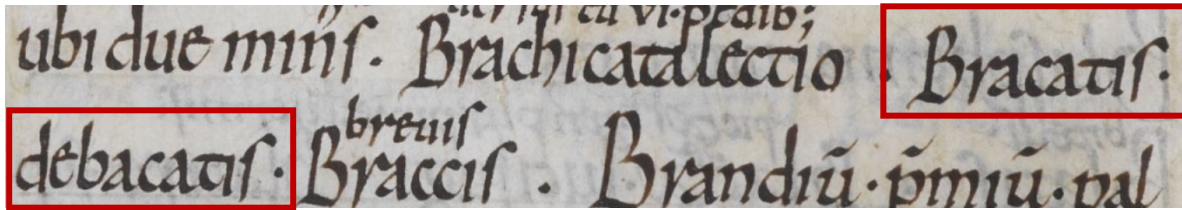 ubi due minꝰ. Brachicatalectio . Bracatis.
debacatis. Braccis . Brandiū. p̄miū. pal
brevis